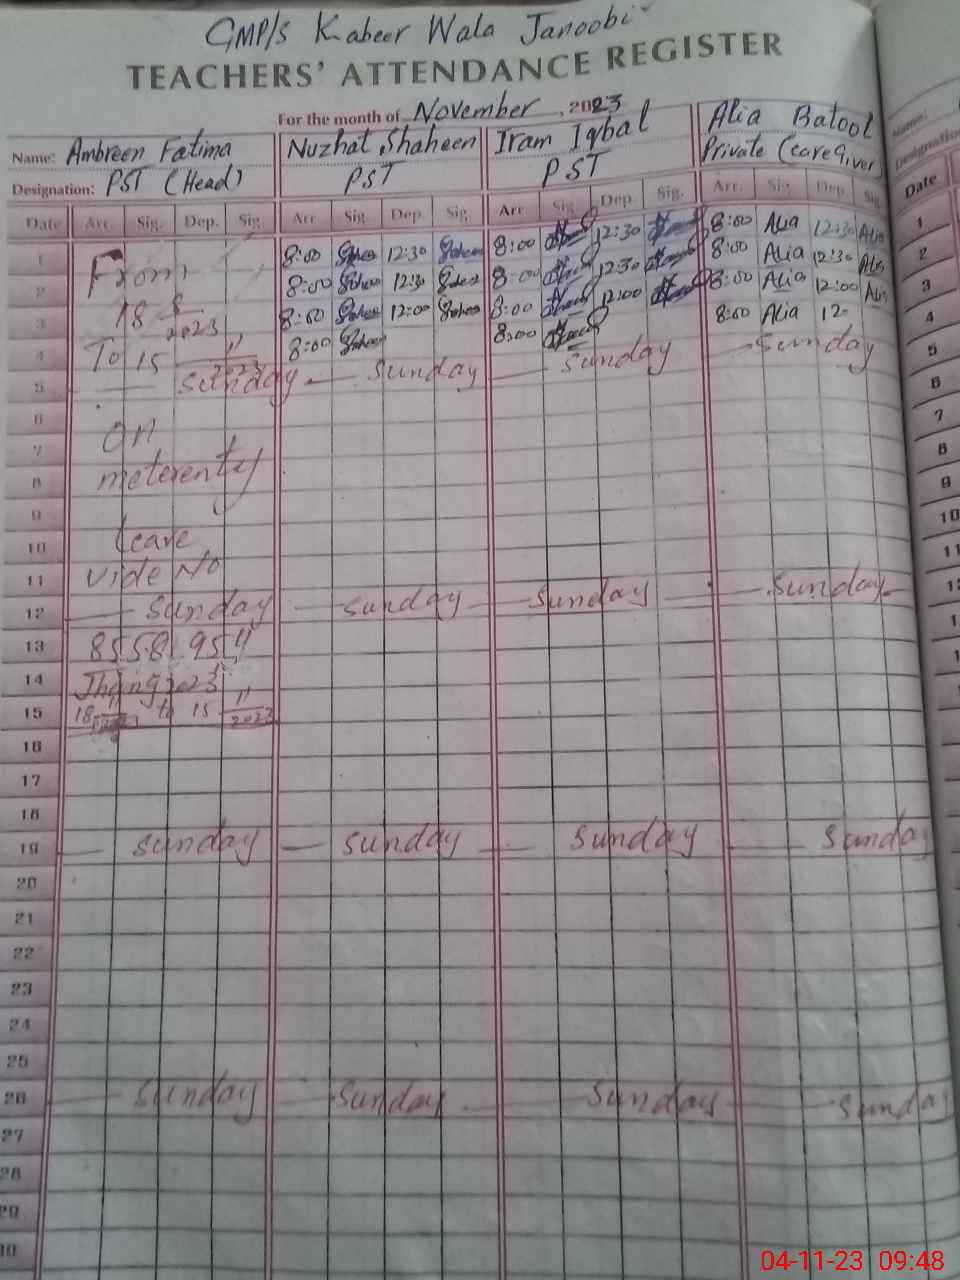 GMP/s Kabeer Wala Janoobi
TEACHERS' ATTENDANCE REGISTER
For the month of November, 2023
Name: Ambreen Fatima Nuzhat Shaheen Iram Iqbal Alia Batool
Designation: PST (Head) PST PST Private (Care Giver)
Date Arr. Sig. Dep. Sig. Arr Sig. Dep. Sig. Arr. Sig. Dep. Sig. Arr. Sig. Dep. Sig
1 From 8:00 12:30 8:00 12:30 8:00 Alia 12:30 Alia
2 18 8 2023 8:00 12:30 8:00 12:30 8:00 Alia 12:30 Alia
3 8:00 12:00 8:00 12:00 8:00 Alia 12:00 Alia
4 To 15 11 2023 8:00 8:00 8:00 Alia 12-
5 Sunday Sunday Sunday Sunday
6
7 on
8 meterenty
9
10 leave
11 vide No
12 Sunday Sunday Sunday Sunday
13
14 Jhang
15 18 to 15 11 2023
16
17
18
19 Sunday Sunday Sunday Sunda
20
21
22
23
24
25
26 Sunday Sunday Sunday Sunda
27
28
29
30
Name:
Designation
Date
1
2
3
4
5
6
7
8
9
10
11
04-11-23 09:48